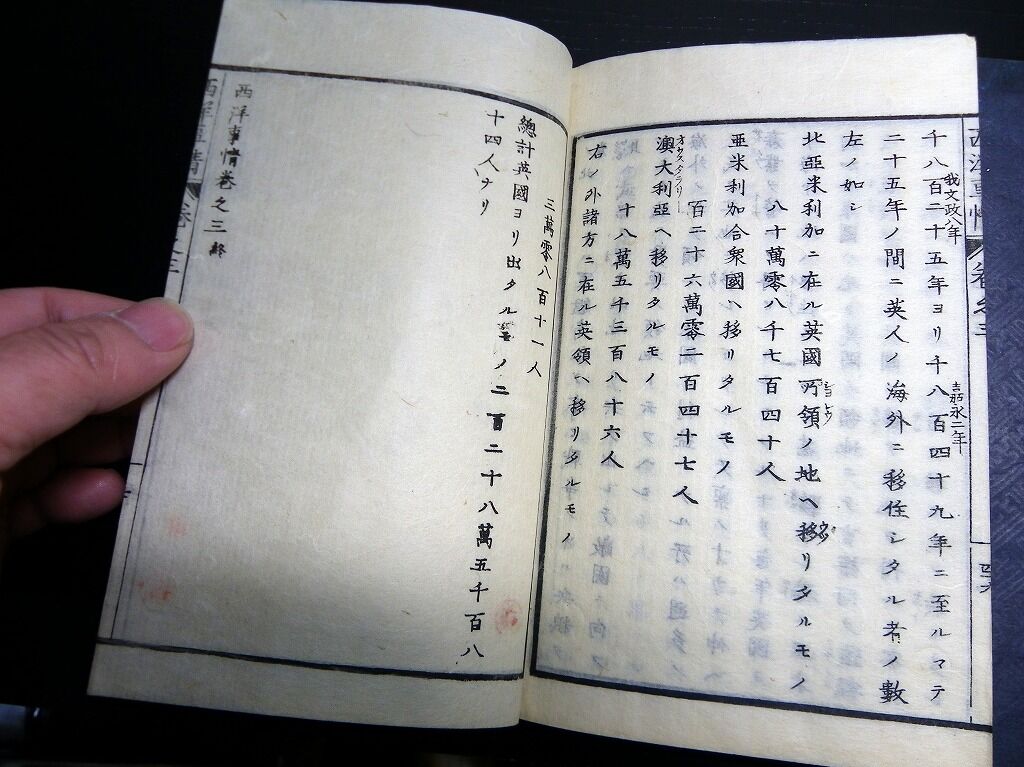 千八百二十五年ヨリ千八百四十九年ニ至ルマテ
我文政八年
嘉永二年
二十五年ノ間ニ英人ノ海外ニ移住シタル者ノ數
左ノ如シ
北亞米利加ニ在ル英國所領ノ地ヘ移リタルモノ
八十萬零八千七百四十人
亞米利加合衆國ヘ移リタルモノ
百二十六萬零二百四十七人
澳大利亞ヘ移リタルモノ
十八萬五千三百八十六人
右ノ外諸方ニ在ル英領ヘ移リタルモノ
三萬零八百十一人
總計英國ヨリ出タルモノ二百二十八萬五千百八
十四人ナリ
西洋事情卷之三終
西洋事情
卷之三